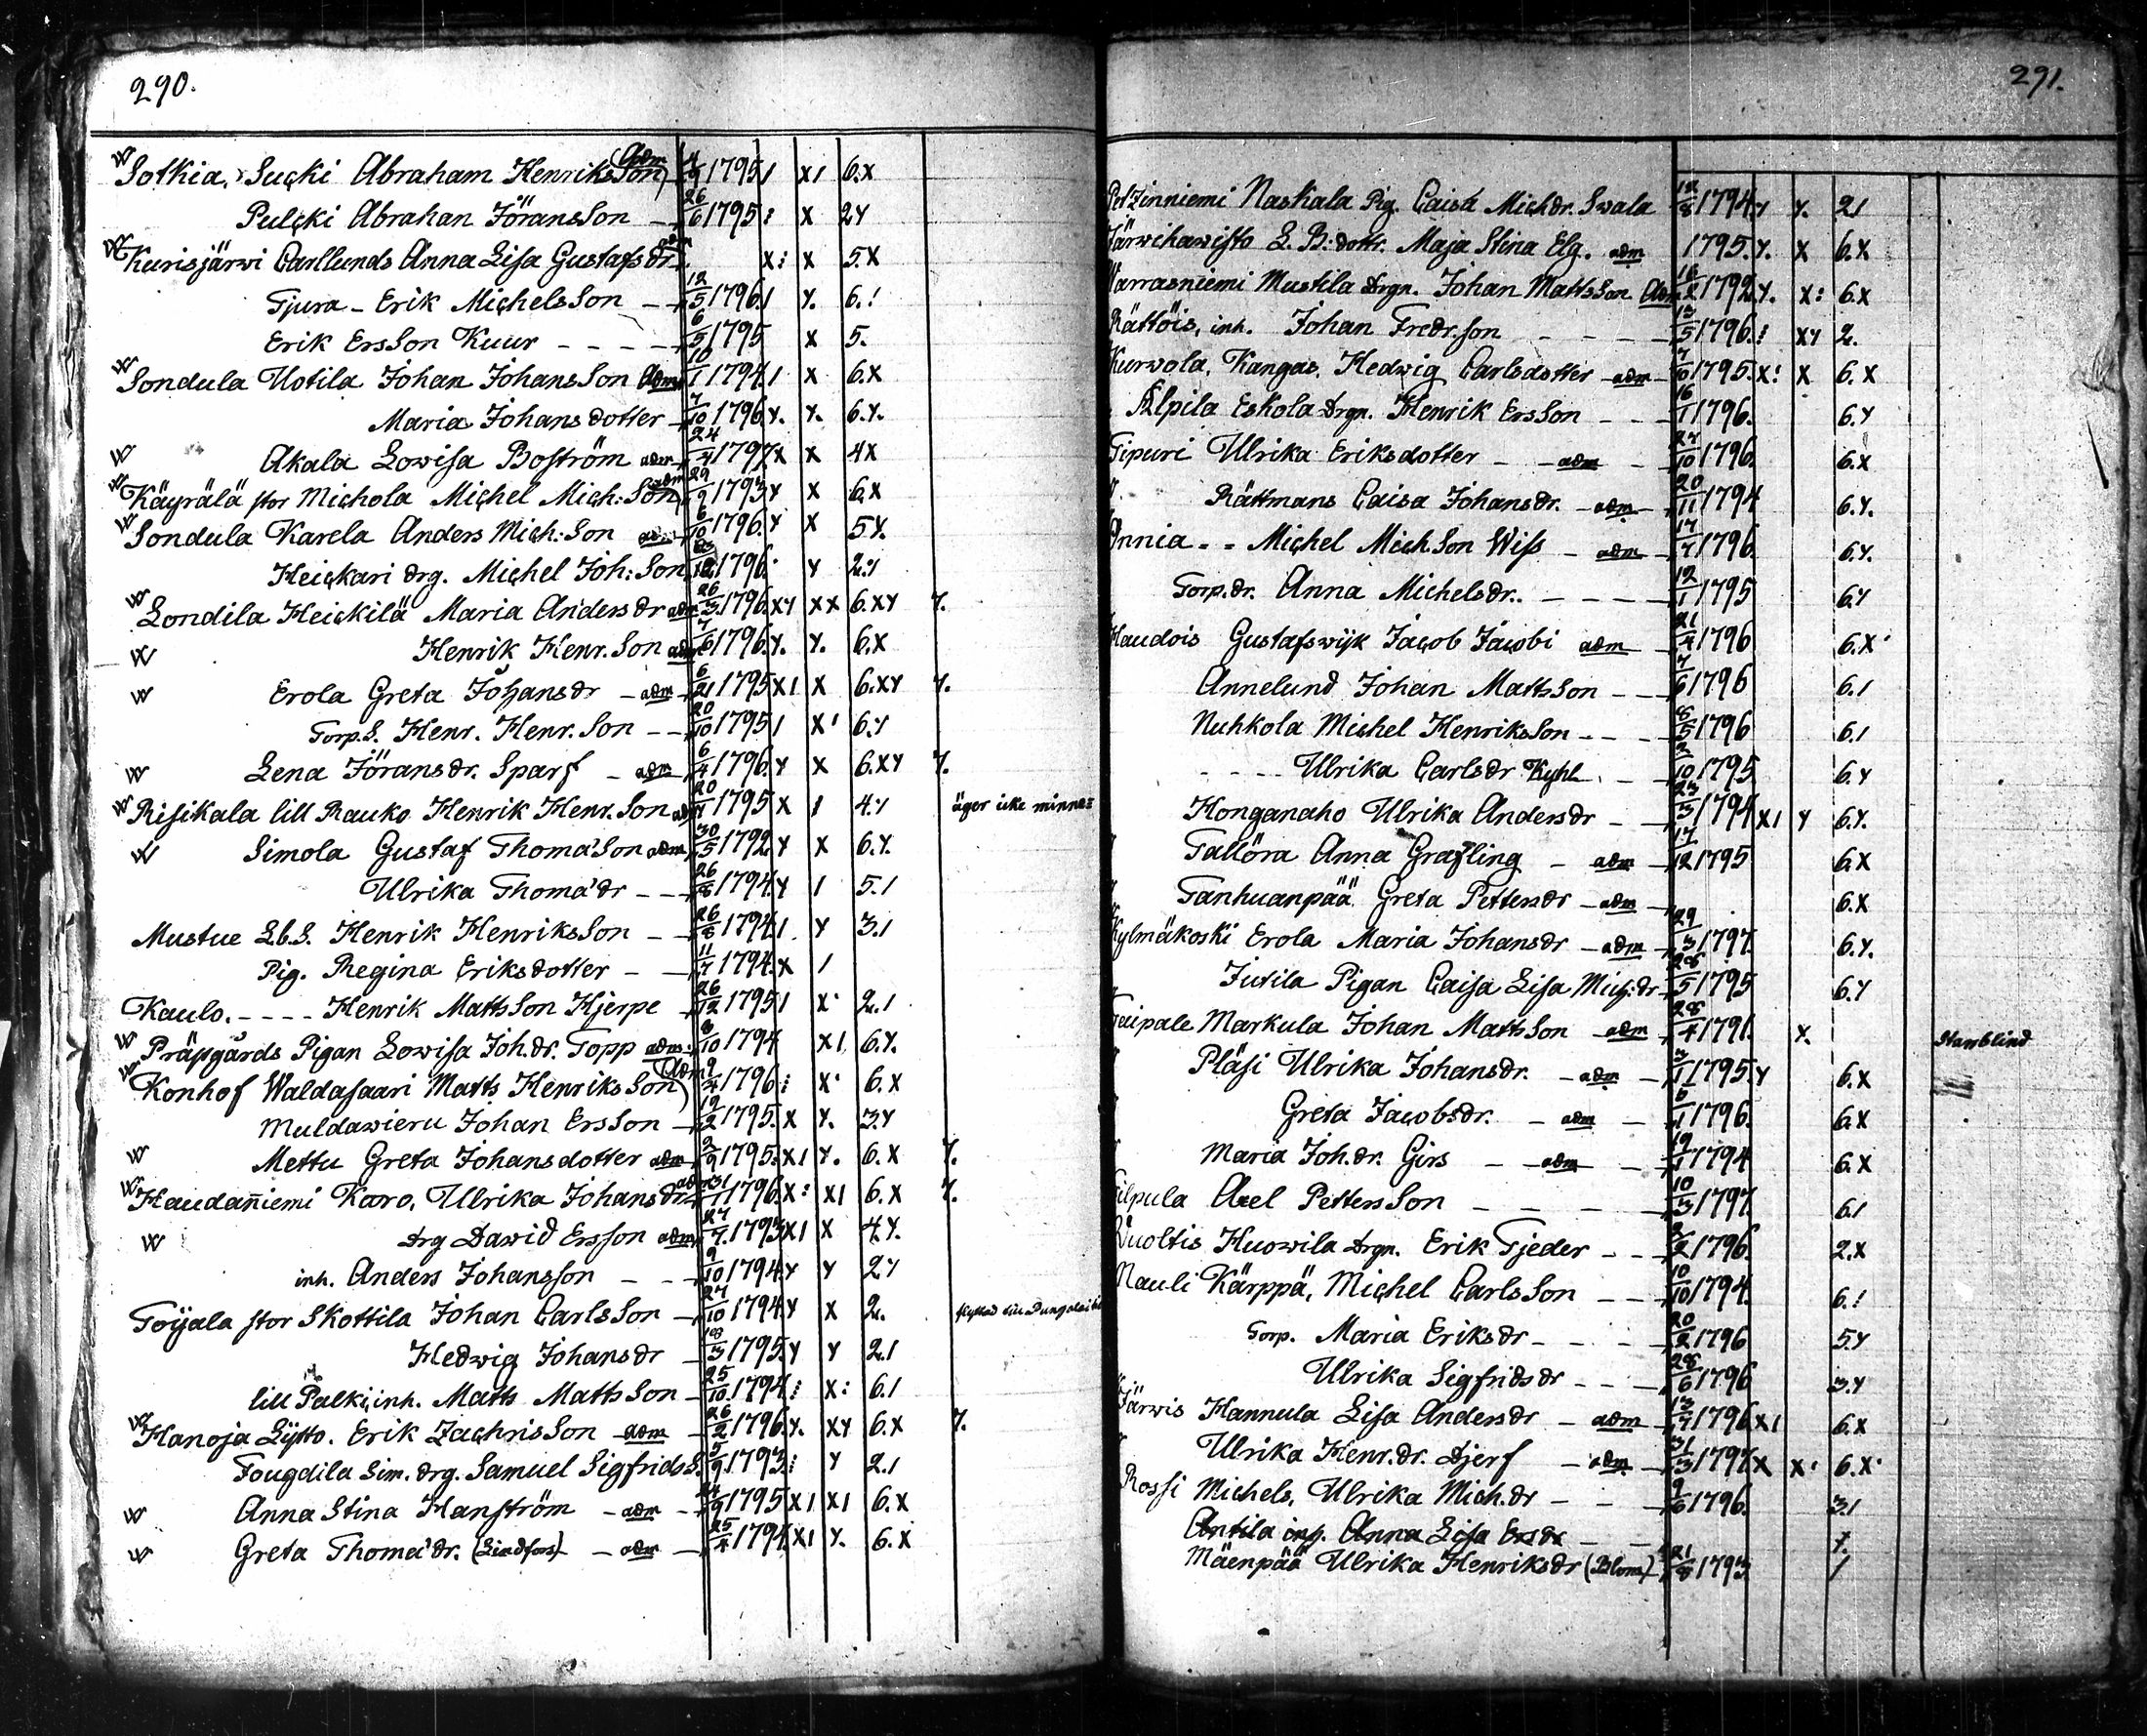 290.
w Sotkia, Sucki Abraham Henriksson Adm 4/9 1795 / x/ 6.x
Pulcki Abrahan Föransson 26/6 1795: x 2y
w Kurisjärwi Carllunds Anna Lisa Gustafsdr x: x 5.x
Tjura - Erik Michelsson 12/5 1796 / y. 6.!
Erik Ersson Kuur 6/5 1795 x 5.
w Sondula Uotila Johan Johansson Adm 10/1 1794 / x 6.x
Maria Johansdotter 7/10 1796 y. y. 6.y.
w Akala Lowisa Boström adm 24/4 1797 x x 4x
w Käyrälä stor Michola Michel Mich:Son adm 29/9 1793 y x 6.x
w Sondula Karela Anders Mich:Son adm 6/10 1796 y x 5y.
Heickari drg. Michel Joh:Son 1796. y 2:/
w Londila Heickilä Maria Andersdr adm 26/3 1796 xy xx 6.xy y.
w Henrik Henr.Son adm 7/6 1796 y. y. 6.x
w Erola Greta Johansdr adm 6/21 1795 x/ x 6.xy y.
Torp.S. Henr. Henr.Son 20/10 1795 / x' 6.y
w Lena Föransdr. Sparf adm 6/4 1796 y x 6.xy y.
w Risikala lill Rauko Henrik Henr.Son adm 1795 x / 4y äger icke minne=
w Simola Gustaf Thoma'Son adm 30/5 1792 y x 6.y.
Ulrika Thoma'dr 26/8 1794 y / 5./
Mustue L.b.S. Henrik Henriksson 26/8 1794 / y 3./
Pig. Regina Eriksdotter 11/7 1794. x /
Kaulo. Henrik Mattsson Hjerpe 26/12 1795 / x' 2./
w Präpgårds Pigan Lowisa Joh.dr. Topp adm. 8/10 1794 x/ 6.y.
w Konhof Waldasaari Matts Henriksson Adm 9/4 1796: x' 6.x
Muldawieru Johan Ersson 19/2 1795. x y. 3.y
w Mettu Greta Johansdotter adm 2/9 1795. x/ y. 6.x y.
w Haudaniemi Karo, Ulrika Johansdr adm 31/1 1796 x: x/ 6.x y.
w drg Dawid Ersson adm 27/7 1793 x/ x 4.y.
inh. Anders Johansson 9/10 1794 y y 2y
Toijala stor Skottila Johan Carlsson 27/10 1794 y x 2.
Hedwig Johansdr 1795 y y 2./
lill Palki, inh. Matts Mattsson 25/10 1794: x: 6./
w Hanoja Lytto. Erik Zachrisson adm 26/2 1796 y. xy 6.x y.
Fougdila Sim. drg. Samuel SigfridsS. 5/9 1793: y 2./
w Anna Stina Hanström adm 24/9 1795 x/ x/ 6.x
w Greta Thoma'dr. (Lindfors) adm 25/4 1794 x/ y. 6.x
291.
Petzinniemi Naskala Pig. Caisa Michdr. Swala 12/8 1794 y y. 2/
Järwihawisto L.B:dottr. Maja Stina Elg. adm 1795. y. x 6.x
Warrasniemi Mustila drgn. Johan Mattsson Adm 1792 y. x: 6.x
Rättöis, inh. Johan Fredr.son 13/5 1796: xy 2.
Kurwola, Kangas, Hedwig Carlsdotter adm 7/10 1795. x: x 6.x
Alpila Eskola drgn. Henrik Ersson 16/1 1796. 6.y
Tipuri Ulrika Eriksdotter adm 27/10 1796 6.x
Rättmans Caisa Johansdr. adm 20/11 1794 6.y.
Annia - - Michel MichSon Wiss adm 17/7 1796 6.y.
Torp.dr. Anna Michelsdr. 12/1 1795 6.y
Haudois Gustafswijk Jacob Jacobi adm 21/4 1796 6.x'
Annelund Johan Mattsson 7/6 1796 6./
Nuhkola Michel Henriksson 6/5 1796 6./
Ulrika Carlsdr Kyhl 1795 6.y
Honganaho Ulrika Andersdr 23/3 1794 x/ y 6.y.
Tallöra Anna Grafling adm 17/12 1795 6.x
Tanhuanpää Greta Pettersdr adm 6.x
Kylmäkoski Erola Maria Johansdr adm 29/3 1797. 6.y.
Jutila Pigan Caisa Lisa Mich:dr 28/5 1795 6.y
Taipale Markula Johan Mattsson adm 28/4 1791. x. Starrblind
Pläsi Ulrika Johansdr. adm 3/1 1795. y 6.x
Greta Jacobsdr. adm 6/1 1796. 6.x
Maria Joh.dr. Girs adm 19/1 1794 6.x
Tilpula Axel Pettersson 10/3 1797 6./
Luoltis Huowila drgn. Erik Tjeder 2/2 1796 2.x
Nauli Kärppä, Michel Carlsson 10/10 1794. 6.!
Torp. Maria Eriksdr 20/2 1796 5.y
Ulrika Sigfridsdr 28/6 1796 3.y
Järwis Hannula Lisa Andersdr adm 13/7 1796 x/ 6.x
Ulrika Henr.dr. Djerf adm 31/3 1797 x x' 6.x'
Rossi Michels, Ulrika Mich.dr 9/6 1796. 3./
Antila inh. Anna Lisa Ersdr 7.
Mäenpää Ulrika Henriksdr (Blom) 21/8 1793 /